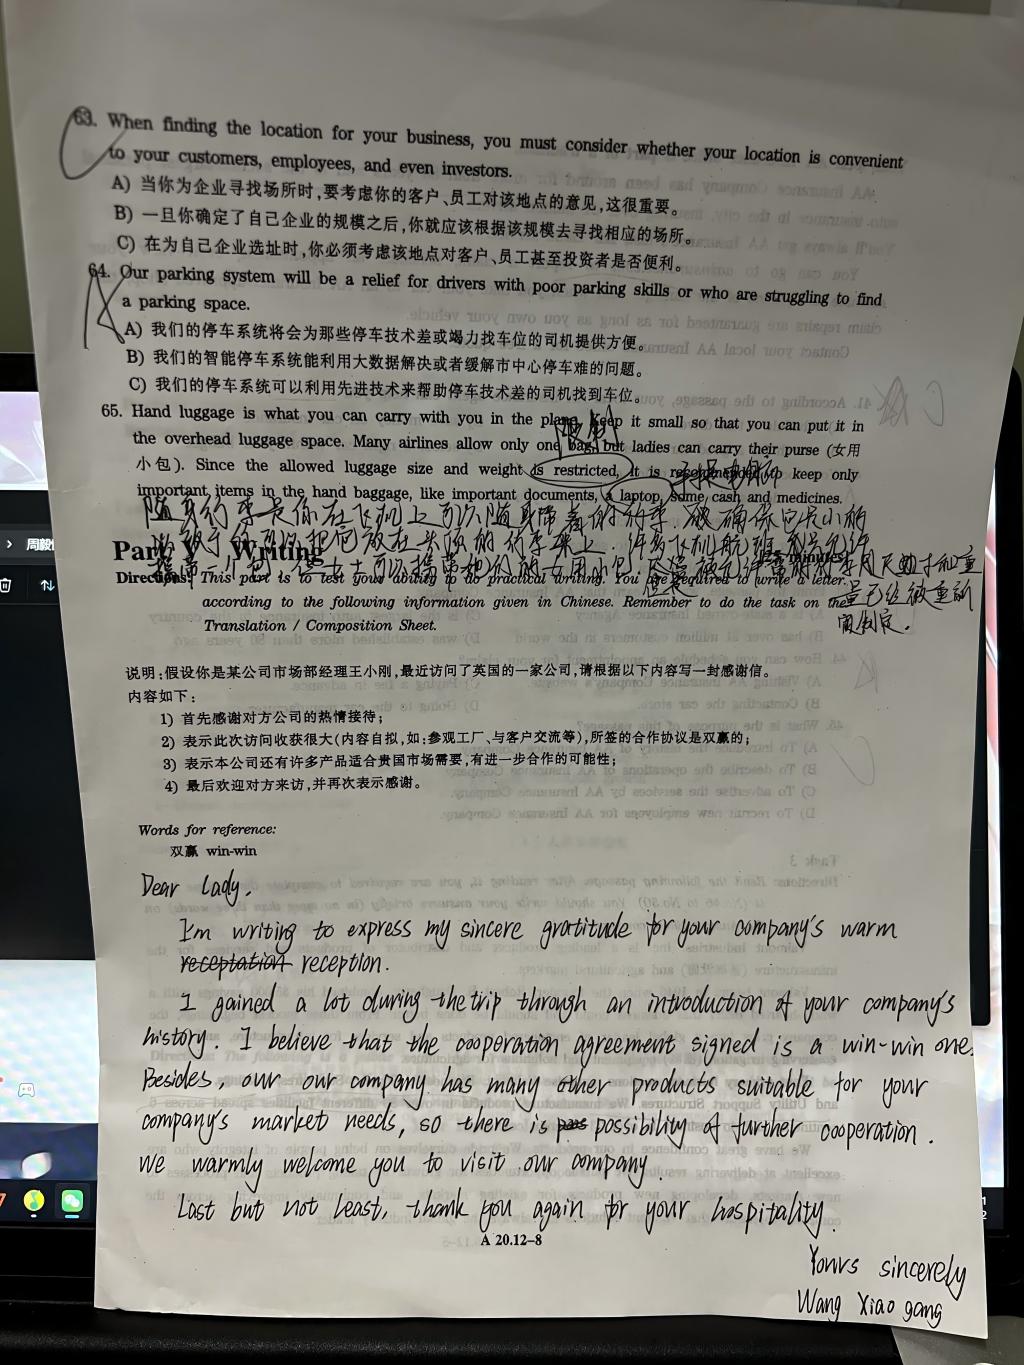 63. When finding the location for your business, you must consider whether your location is convenient
to your customers, employees, and even investors.
A) 当你为企业寻找场所时,要考虑你的客户、员工对该地点的意见,这很重要。
B) 一旦你确定了自己企业的规模之后,你就应该根据该规模去寻找相应的场所。
C) 在为自己企业选址时,你必须考虑该地点对客户、员工甚至投资者是否便利。
64. Our parking system will be a relief for drivers with poor parking skills or who are struggling to find
a parking space.
A) 我们的停车系统将会为那些停车技术差或竭力找车位的司机提供方便。
B) 我们的智能停车系统能利用大数据解决或者缓解市中心停车难的问题。
C) 我们的停车系统可以利用先进技术来帮助停车技术差的司机找到车位。
65. Hand luggage is what you can carry with you in the plane. Keep it small so that you can put it in
限制
the overhead luggage space. Many airlines allow only one bag, but ladies can carry their purse (女用
小包). Since the allowed luggage size and weight is restricted, it is recommended to keep only
important items in the hand baggage, like important documents, a laptop, some cash and medicines.
随身行李是你在飞机上可以随身带着的行李.
Part V Writing
Directions: This part is to test your ability to do practical writing. You are required to write a letter
according to the following information given in Chinese. Remember to do the task on the
Translation / Composition Sheet.
说明:假设你是某公司市场部经理王小刚,最近访问了英国的一家公司,请根据以下内容写一封感谢信。
内容如下:
1) 首先感谢对方公司的热情接待;
2) 表示此次访问收获很大(内容自拟,如:参观工厂、与客户交流等),所签的合作协议是双赢的;
3) 表示本公司还有许多产品适合贵国市场需要,有进一步合作的可能性;
4) 最后欢迎对方来访,并再次表示感谢。
Words for reference:
双赢 win-win
Dear Lady,
I'm writing to express my sincere gratitude for your company's warm
receptation reception.
I gained a lot during the trip through an introduction of your company's
history. I believe that the cooperation agreement signed is a win-win one.
Besides, our our company has many other products suitable for your
company's market needs, so there is poss possibility of further cooperation.
We warmly welcome you to visit our company.
Last but not least, thank you again for your hospitality.
A 20.12-8
Yours sincerely
Wang Xiao gang